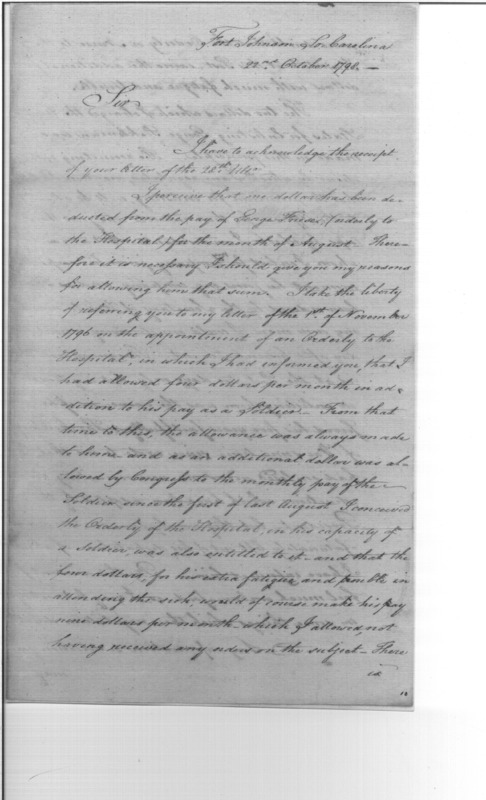 Fort Johnson So. Carolina
22nd October 1798. —
Sir
I have to acknowledge the receipt
of your letter of the 28th Ulto.
I perceive that one dollar has been de-
ducted from the pay of George (orderly to
the Hospital) for the month of August. There-
fore it is necessary I should give you my reasons
for allowing him that sum. I take the liberty
of refering you to my letter of the 1st of November
1796 on the appointment of an Orderly to the
Hospital, in which I had informed you, that I
had allowed four dollars per month in ad-
dition to his pay as a Soldier — From that
time to this, the allowance was always made
to him and as an additional dollar was al-
lowed by Congress to the monthly pay of the
Soldier since the first of last August I conceived
the Orderly of the Hospital, in his capacity of
a Soldier, was also entitled to it — and that the
four dollars, for his extra fatigue and trouble in
attending the sick, would of course make his pay
nine dollars per month which I allowed, not
having received any orders on the subject — There
is